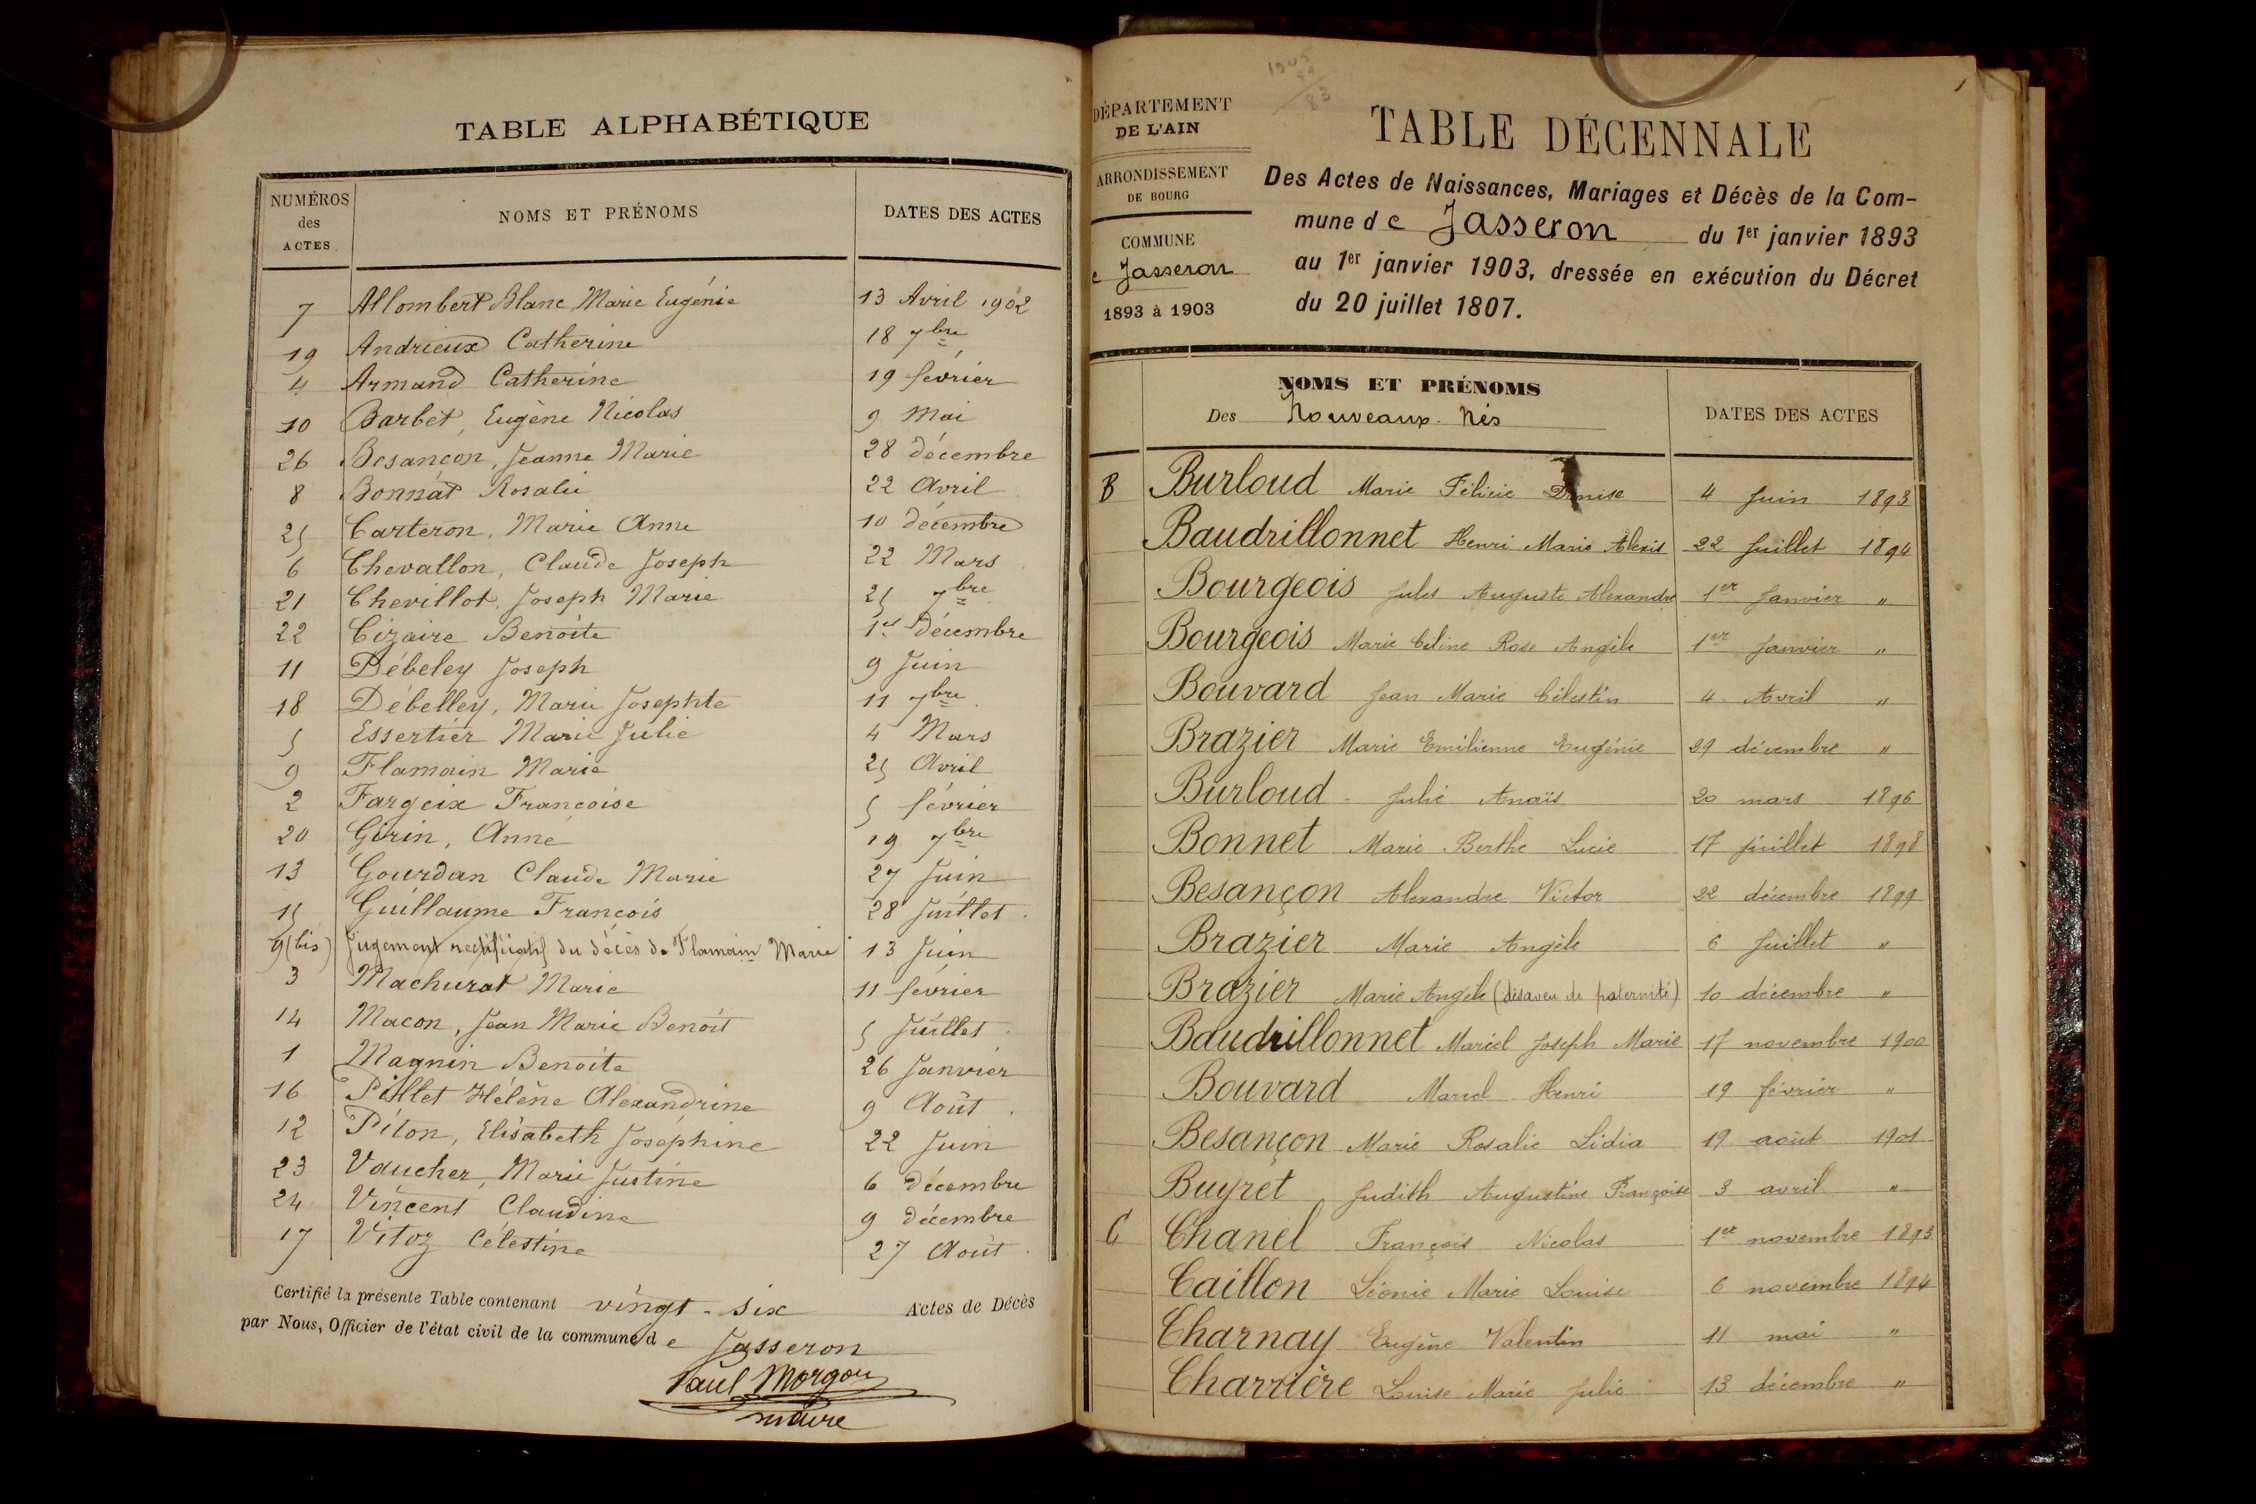 TABLE ALPHABÉTIQUE
NUMÉROS des ACTES
NOMS ET PRÉNOMS
DATES DES ACTES
7 Allombert Blanc Marie Eugénie 13 Avril 1902
19 Andrieux Catherine 18 7bre
4 Armand Catherine 19 février
10 Barbet, Eugène Nicolas 9 Mai
26 Besançon, Jeanne Marie 28 décembre
8 Bonnat Rosalie 22 Avril
25 Carteron, Marie Anne 10 décembre
6 Chevallon, Claude Joseph 22 Mars
21 Chevillot, Joseph Marie 25 7bre
22 Cizaire Benoîte 1er Décembre
11 Débeley Joseph 9 Juin
18 Débelley, Marie Josephte 11 7bre
5 Essertier Marie Julie 4 Mars
9 Flamain Marie 25 Avril
2 Fargeix Françoise 5 février
20 Girin, Anne 19 7bre
13 Gourdan Claude Marie 27 Juin
15 Guillaume François 28 Juillet
9(bis) Jugement rectificatif du décès de Flamain Marie 13 Juin
3 Machurat Marie 11 février
14 Macon, Jean Marie Benoît 5 Juillet
1 Magnin Benoite 26 Janvier
16 Pillet Hélène Alexandrine 9 Août
12 Piton, Elisabeth Joséphine 22 Juin
23 Vaucher, Marie Justine 6 Décembre
24 Vincent Claudine 9 décembre
17 Vitoz Célestine 27 Août
Certifié la présente Table contenant vingt-six Actes de Décès
par Nous, Officier de l'état civil de la commune de Jasseron
Paul Morgon
maire
1903
83
DÉPARTEMENT
DE L'AIN
ARRONDISSEMENT
DE BOURG
COMMUNE
e Jasseron
1893 à 1903
TABLE DÉCENNALE
Des Actes de Naissances, Mariages et Décès de la Com-
mune de Jasseron du 1er janvier 1893
au 1er janvier 1903, dressée en exécution du Décret
du 20 juillet 1807.
NOMS ET PRÉNOMS
Des Nouveaux-Nés
DATES DES ACTES
B Burloud Marie Félicie Denise 4 Juin 1893
Baudrillonnet Henri Marie Alexis 22 Juillet 1894
Bourgeois Jules Auguste Alexandre 1er Janvier "
Bourgeois Marie Celine Rose Angèle 1er Janvier "
Bouvard Jean Marie Célestin 4 Avril "
Brazier Marie Emilienne Eugénie 29 décembre "
Burloud Julie Anaïs 20 mars 1896
Bonnet Marie Berthe Lucie 17 juillet 1898
Besançon Alexandre Victor 22 décembre 1899
Brazier Marie Angèle 6 Juillet "
Brazier Marie Angèle (désaveu de paternité) 10 décembre "
Baudrillonnet Marcel Joseph Marie 17 novembre 1900
Bouvard Marcel Henri 19 février "
Besançon Marie Rosalie Lidia 19 août 1901
Buyret Judith Augustine Françoise 3 avril "
C Chanel François Nicolas 1er novembre 1893
Caillon Léonie Marie Louise 6 novembre 1894
Charnay Eugène Valentin 11 mai "
Charrière Louise Marie Julie 13 décembre "